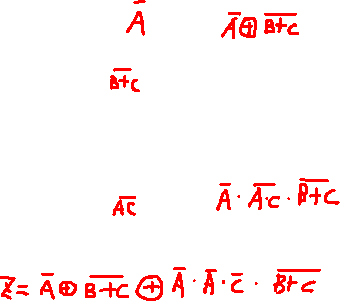 A̅ A̅ ⊕ B̅+̅C̅
B̅+̅C̅
A̅C̅ A̅ · A̅·̅C̅ · B̅+̅C̅
Z̅ = A̅ ⊕ B̅+̅C̅ ⊕ A̅ · A̅ · C̅ · B̅+̅C̅